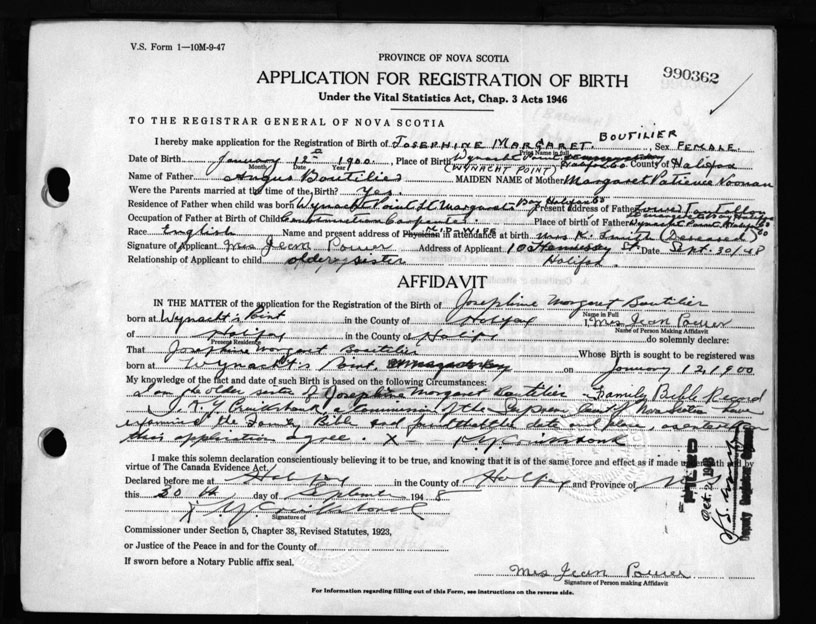 V.S. Form 1—10M-9-47
PROVINCE OF NOVA SCOTIA
APPLICATION FOR REGISTRATION OF BIRTH
990362
Under the Vital Statistics Act, Chap. 3 Acts 1946
TO THE REGISTRAR GENERAL OF NOVA SCOTIA
I hereby make application for the Registration of Birth of JOSEPHINE MARGARET BOUTILIER Sex FEMALE
Print Name in full
Date of Birth January 12th 1900 Place of Birth Wynacht Point Halifax Co. County of Halifax
Month Date Year (WYNACHT POINT)
Name of Father Angus Boutilier MAIDEN NAME of Mother Margaret Patience Noonan
Were the Parents married at the time of the Birth? Yes.
Residence of Father when child was born Wynacht Point St Margarets Bay Halifax Co Present address of Father
Occupation of Father at Birth of Child Construction Carpenter Place of birth of Father
Race English Name and present address of Physician MIDWIFE in attendance at birth Mrs K. Smith (Deceased)
Signature of Applicant Mrs Jean Power Address of Applicant 10 Hennessy St Date Sept. 30/48
Relationship of Applicant to child older sister Halifax.
AFFIDAVIT
IN THE MATTER of the application for the Registration of the Birth of Josephine Margaret Boutilier
Name in Full
born at Wynacht's Point in the County of Halifax I, Mrs Jean Power
Name of Person Making Affidavit
of Halifax in the County of Halifax do solemnly declare:
Present Residence
That Josephine Margaret Boutilier Whose Birth is sought to be registered was
born at Wynacht's Point, on January 12, 1900
My knowledge of the fact and date of such Birth is based on the following Circumstances:
I am the older sister of Josephine Margaret Boutilier - Family Bible Record
a Commissioner of the Supreme Court of Nova Scotia have
examined the Family Bible and find that the date and place, as entered on
this application agree. X-
I make this solemn declaration conscientiously believing it to be true, and knowing that it is of the same force and effect as if made under oath and by
virtue of The Canada Evidence Act.
Declared before me at Halifax in the County of Halifax and Province of N.S.
this 30th day of September 1948
X
Signature of
Commissioner under Section 5, Chapter 38, Revised Statutes, 1923,
or Justice of the Peace in and for the County of
If sworn before a Notary Public affix seal.
FILED
Oct. 2 1948
Deputy Registrar General
Mrs Jean Power
Signature of Person making Affidavit
For Information regarding filling out of this Form, see instructions on the reverse side.